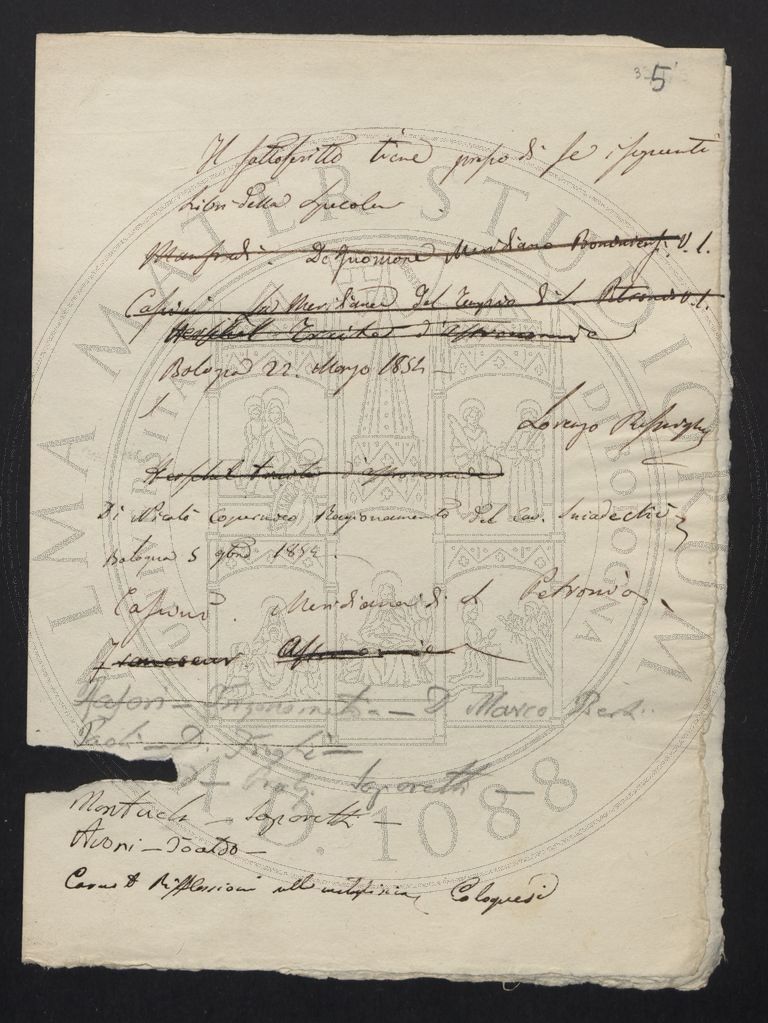 5
Il sottoscritto tiene presso di se i seguenti
Libri della Specola
Manfredi. De Gnomone Meridiano Bononiensi. V. 1.
Cassini La Meridiana del Tempio di S. Petronio V. 1.
Herschel Traité d'Astronomie
Bologna 22. Marzo 1854
Lorenzo Respighi
Herschel traité d'astronomie
Di Nicolò Copernico Ragionamento del Cav. Sniadecki
Bologna 5 9bre 1854.
Cassini. Meridiana di S. Petronio
Francoeur. Astronomie
Trigonometria — D. Marco
Paoli — D.
Saporetti —
Montucla — Saporetti —
Toaldo —
Carnot Riflessioni sulla metafisica
ALMA MATER STUDIORUM
UNIVERSITA DI BOLOGNA
A.D. 1088